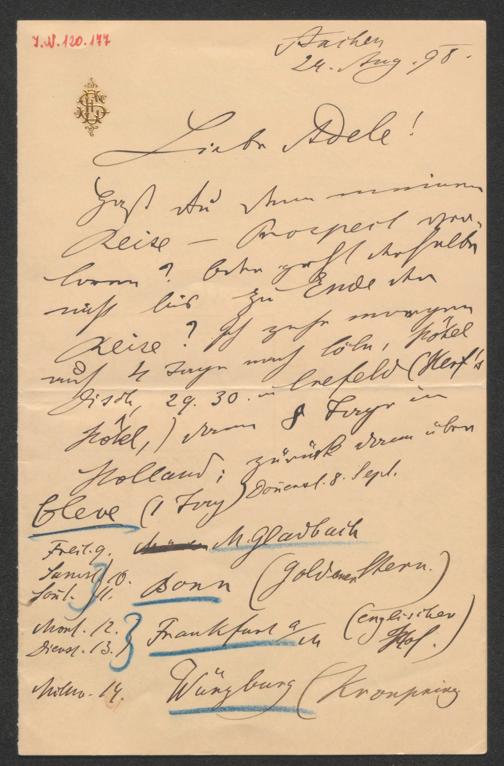 I.N. 120.177
Aachen
24. Aug. 98.
Liebe Adele!
Hast Du denn meinen
Reise - Prospect ver-
loren? Oder geht derselbe
nicht bis zu Ende der
Reise? Ich gehe morgen
auf 4 Tage nach Cöln, Hôtel
Disch, 29. 30. in Crefeld (Herf's
Hôtel,) dann 8 Tage in
Holland; zurück dann über
Cleve (1 Tag) Donnerst. 8. Sept.
Freit. 9. M. Gladbach
Samst. 10.
Sont. 11. Bonn (Goldener Stern.)
Mont. 12.
Dienst. 13. Frankfurt a/M (englischer Hof.)
Mittw. 14. Würzburg (Kronprinz